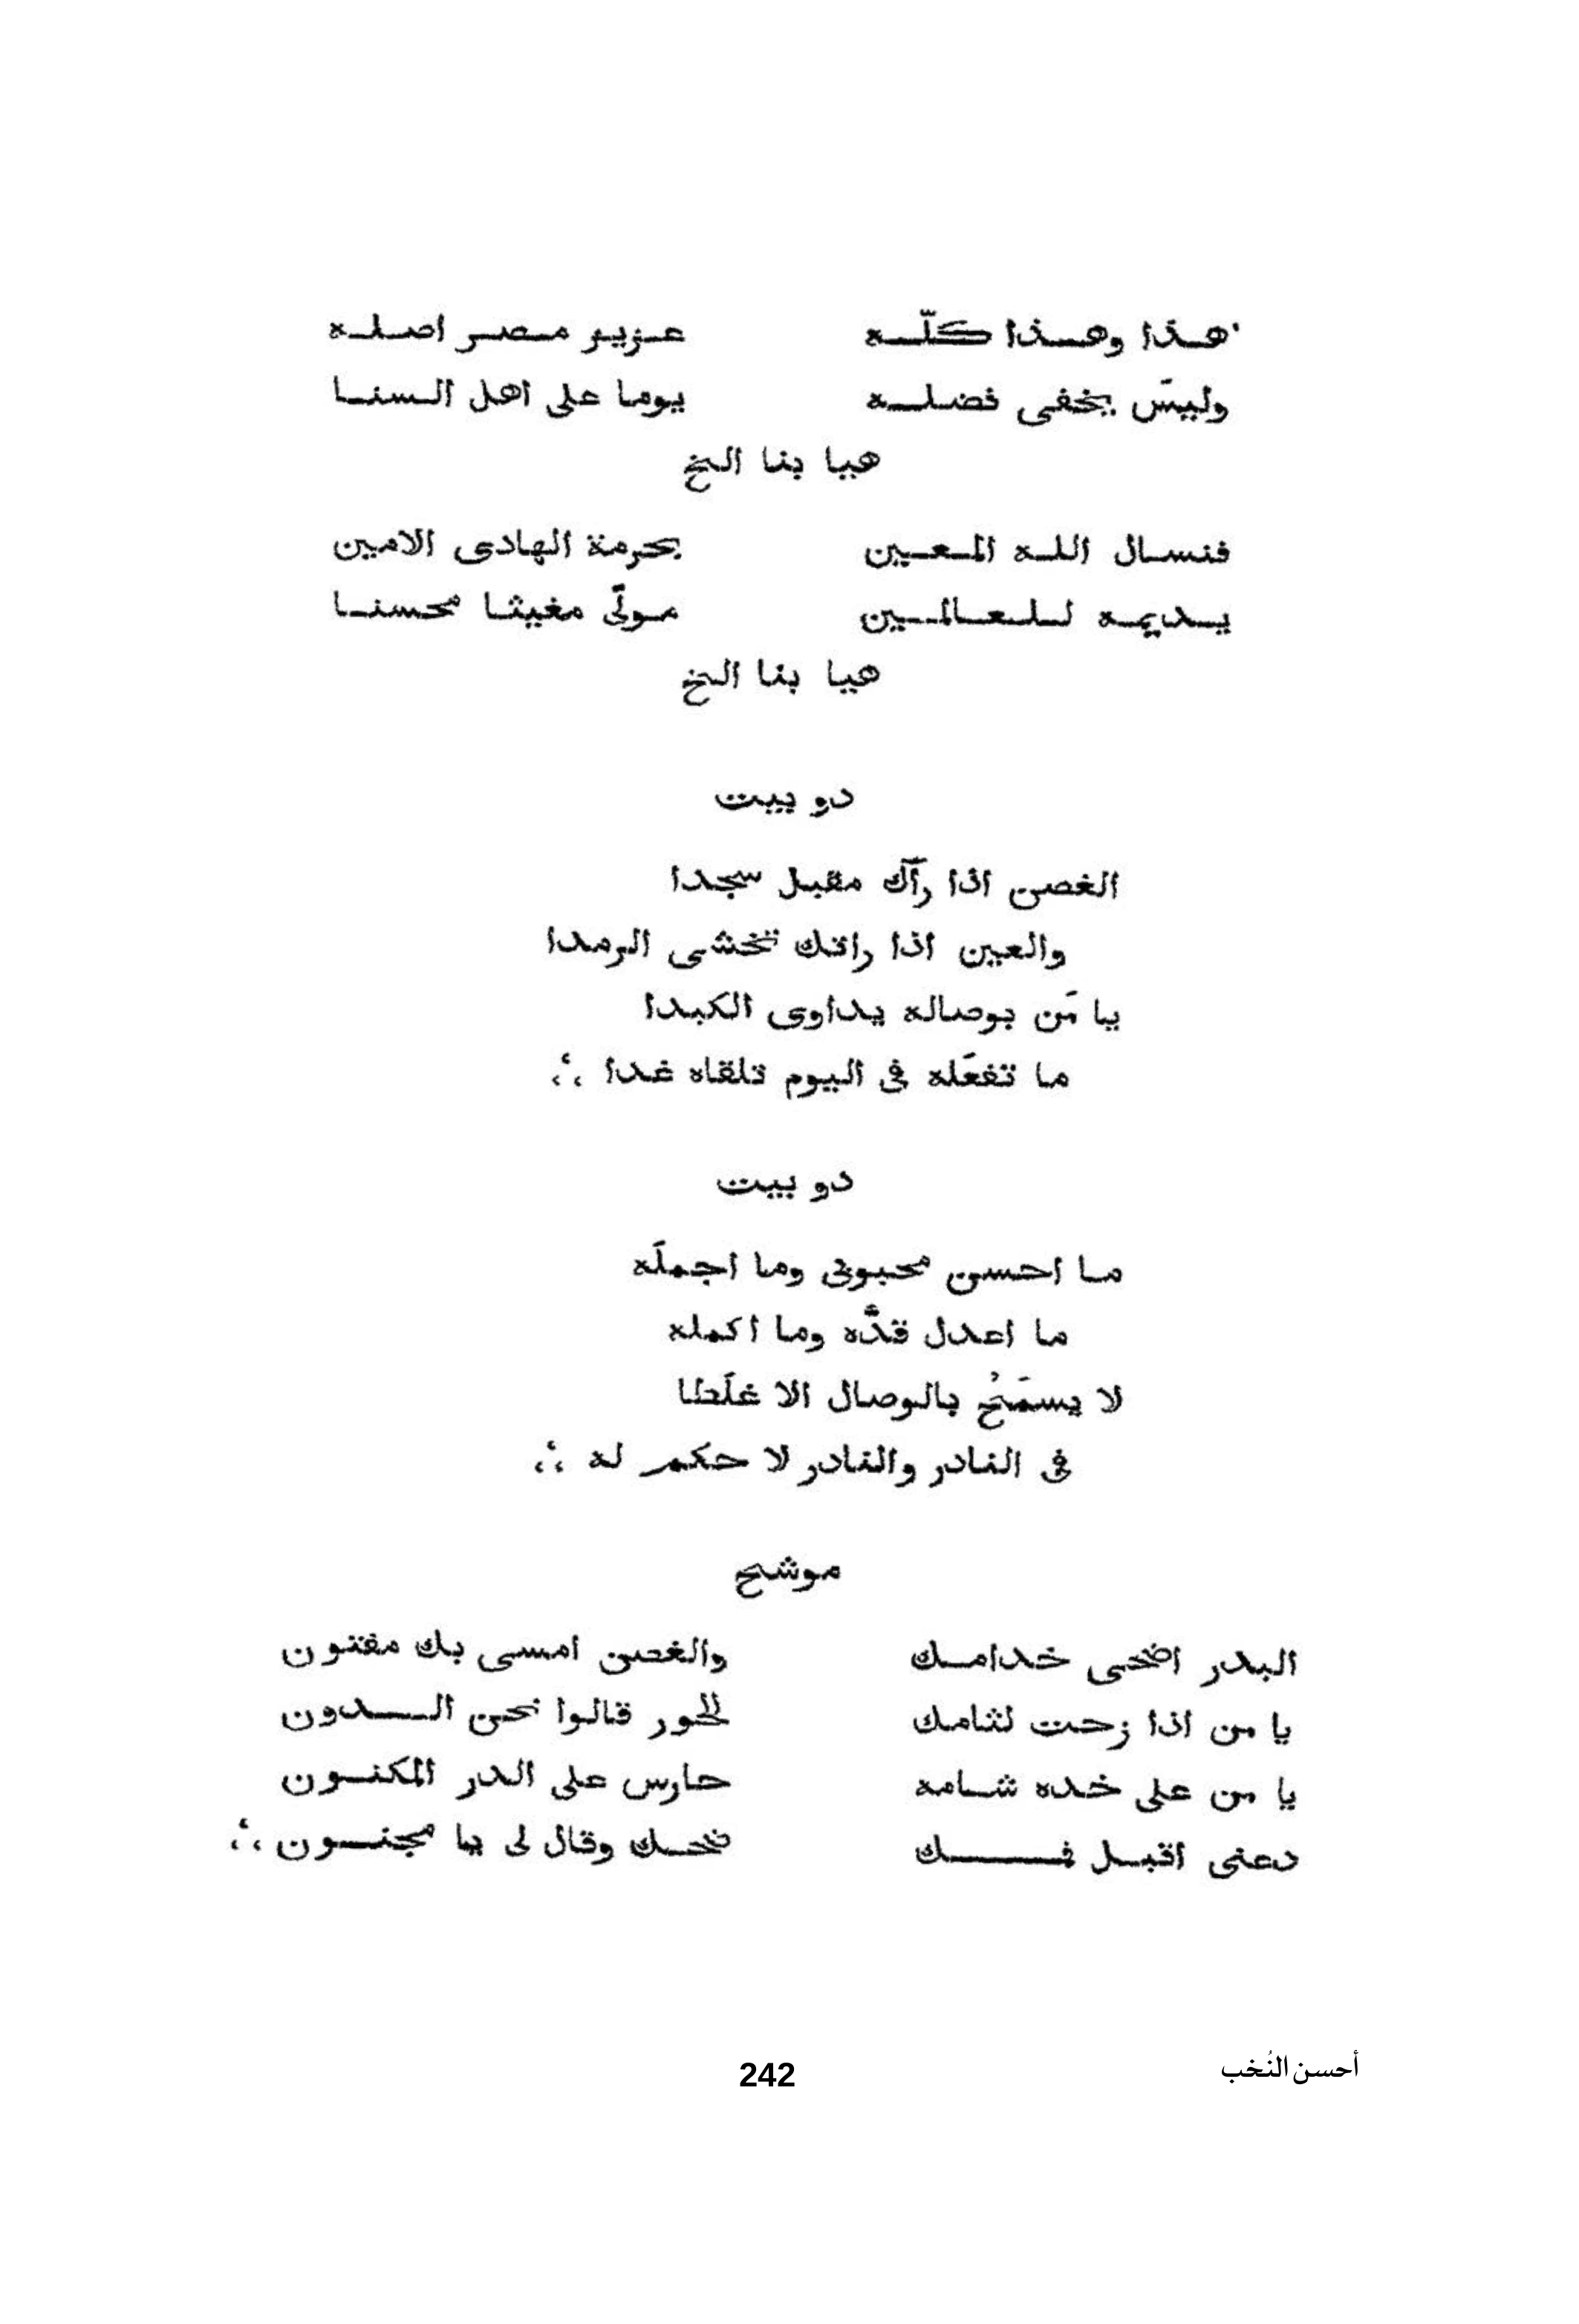 هـذا وهـذا كلّـه عـزيـز مـصـر اصلـه
وليسَ يخفى فضلـه يوما على اهل السنـا
هيا بنا الخ
فنسـال اللـه المـعـين بحرمة الهادى الامين
يـديمـه لـلـعـالمـين مـولًى مغيثـا محسنـا
هيا بنا الخ
دو بيت
الغصن اذا رآك مقبل سجدا
والعين اذا راتك تخشى الرمدا
يا مَن بوصاله يداوى الكبدا
ما تفعَله فى اليوم تلقاه غدا
دو بيت
مـا احسن محبوبى وما اجملَه
ما اعدل قدَّه وما اكمله
لا يسمَحُ بالوصال الا غلَطا
فى النادر والنادر لا حكم له
موشح
البدر اضحى خدامـك والغصن امسى بك مفتون
يا من اذا زحت لثامك للحور قالوا نحن الـدون
يا من على خده شـامه حارس على الدر المكنـون
دعنى اقبـل فـك ضحـك وقال لى يا مجنـون
أحسن النُخب
242